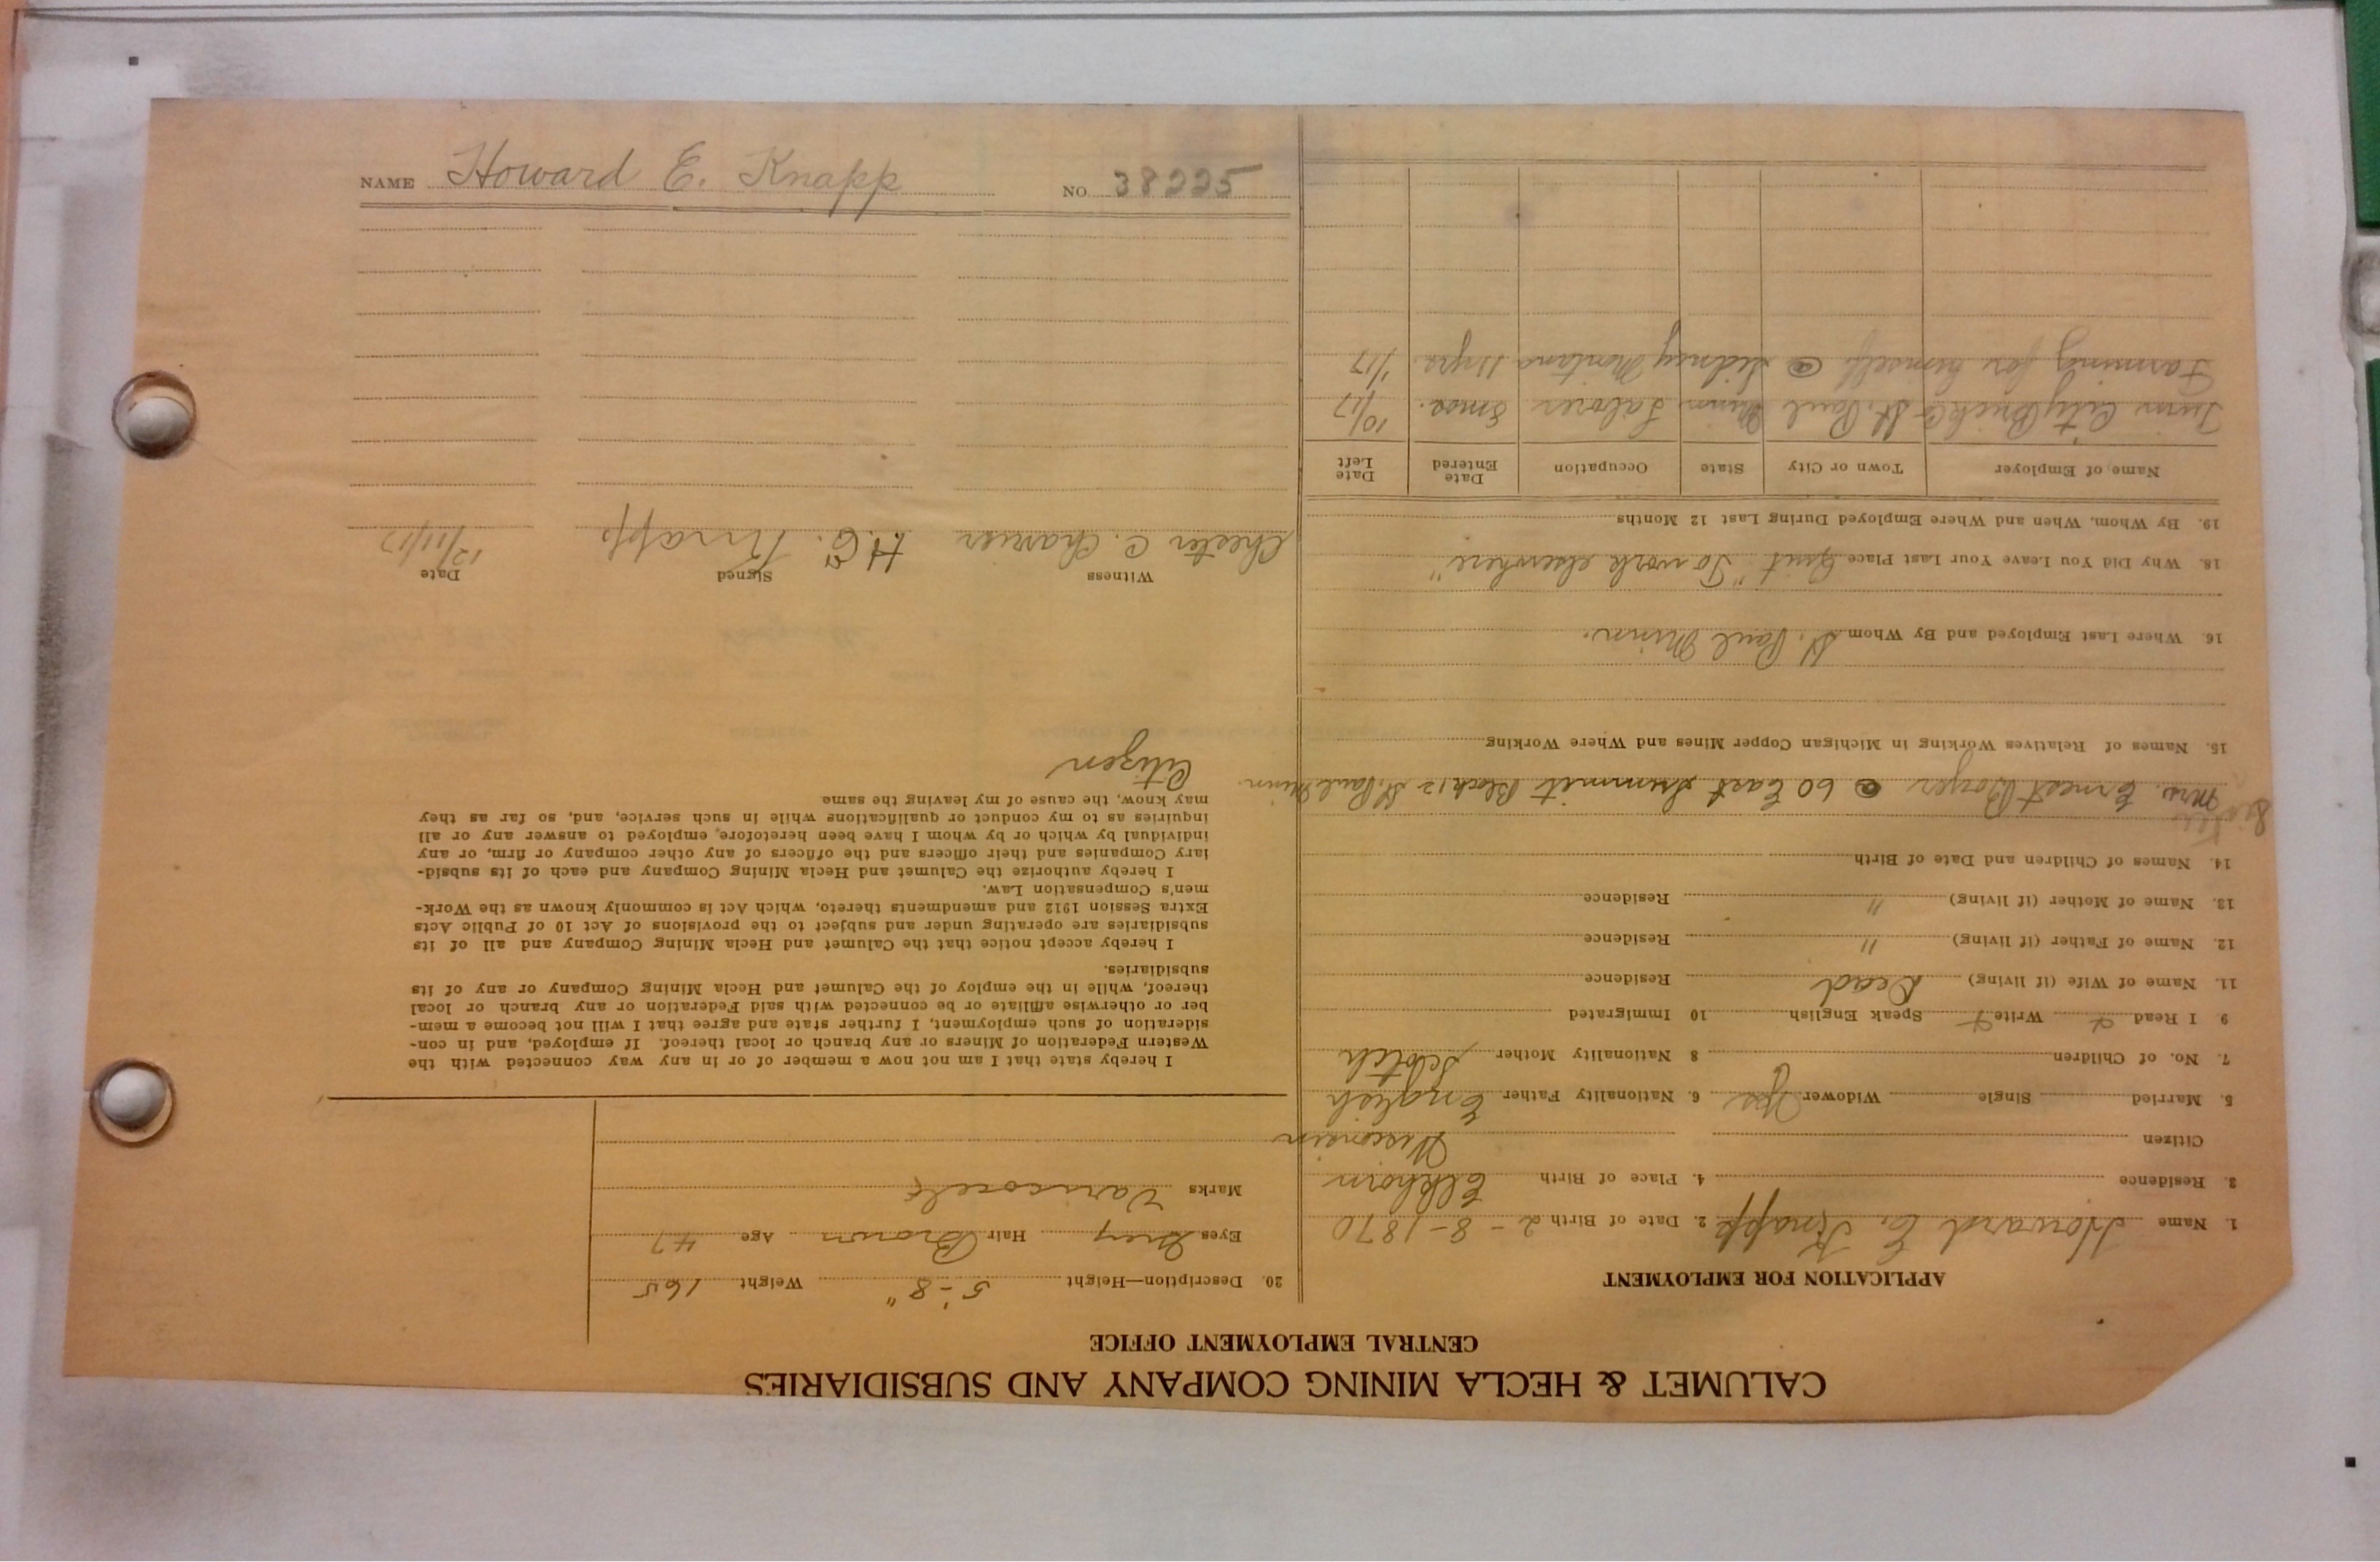 CALUMET & HECLA MINING COMPANY AND SUBSIDIARIES
CENTRAL EMPLOYMENT OFFICE
APPLICATION FOR EMPLOYMENT
1. Name Howard E. Knapp 2. Date of Birth 2-8-1870
3. Residence 4. Place of Birth Elkhorn
Citizen Wisconsin
5. Married Single Widower Yes 6. Nationality Father English
7. No. of Children 8 Nationality Mother Scotch
9 I Read Write Speak English 10 Immigrated
11. Name of Wife (if living) Dead Residence
12. Name of Father (if living) " Residence
13. Name of Mother (if living) " Residence
14. Names of Children and Date of Birth
Sister
Mrs. Ernest Boyer @ 60 East Summit Block 12 St. Paul Minn.
15. Names of Relatives Working in Michigan Copper Mines and Where Working
16. Where Last Employed and By Whom St. Paul Minn.
18. Why Did You Leave Your Last Place Quit "To work elsewhere"
19. By Whom, When and Where Employed During Last 12 Months
Name of Employer Town or City State Occupation Date Entered Date Left
Twin City Brick Co St. Paul Minn Laborer 8mos. 10/17
Farming for himself @ Sidney Montana 11yrs. 1/17
20. Description—Height 5'-8" Weight 165
Eyes Grey Hair Brown Age 47
Marks Varicocele
I hereby state that I am not now a member of or in any way connected with the
Western Federation of Miners or any branch or local thereof. If employed, and in con-
sideration of such employment, I further state and agree that I will not become a mem-
ber or otherwise affiliate or be connected with said Federation or any branch or local
thereof, while in the employ of the Calumet and Hecla Mining Company or any of its
subsidiaries.
I hereby accept notice that the Calumet and Hecla Mining Company and all of its
subsidiaries are operating under and subject to the provisions of Act 10 of Public Acts
Extra Session 1912 and amendments thereto, which Act is commonly known as the Work-
men's Compensation Law.
I hereby authorize the Calumet and Hecla Mining Company and each of its subsid-
iary Companies and their officers and the officers of any other company or firm, or any
individual by which or by whom I have been heretofore, employed to answer any or all
inquiries as to my conduct or qualifications while in such service, and, so far as they
may know, the cause of my leaving the same
Citizen
Witness Signed Date
Chester C. H.E. Knapp 12/11/17
NAME Howard E. Knapp NO. 38225